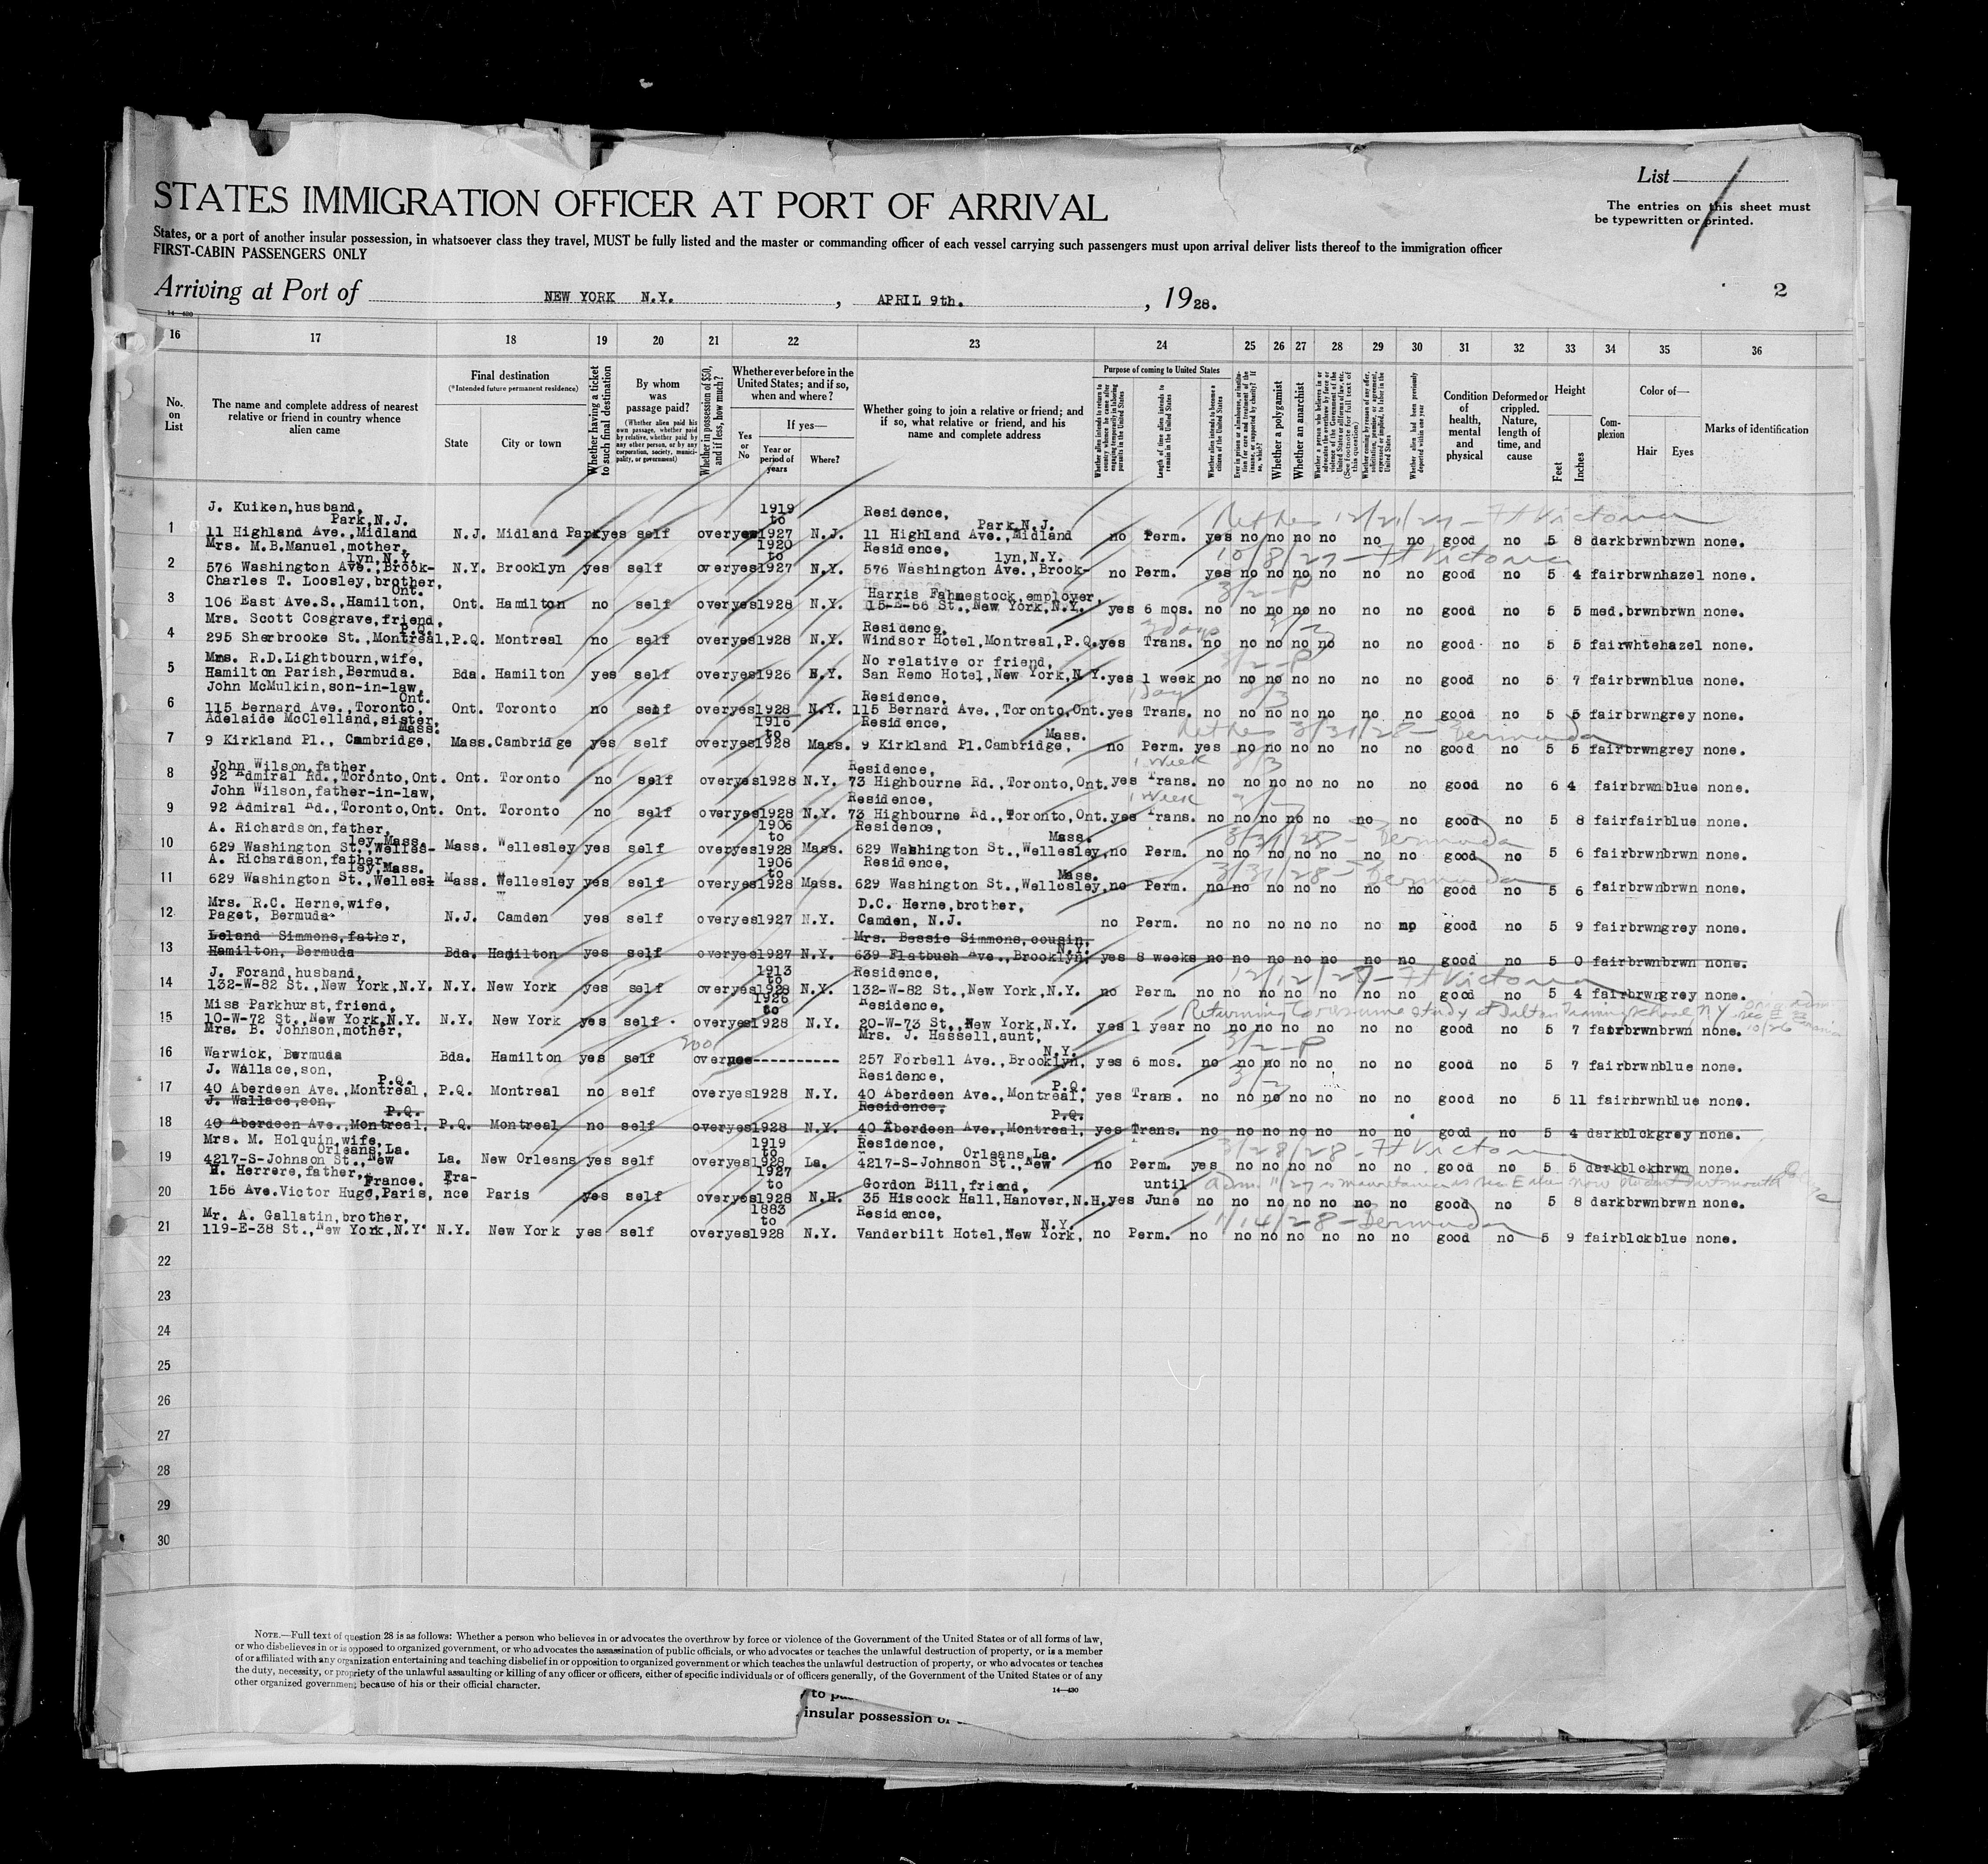 List
STATES IMMIGRATION OFFICER AT PORT OF ARRIVAL
The entries on this sheet must
be typewritten or printed.
States, or a port of another insular possession, in whatsoever class they travel, MUST be fully listed and the master or commanding officer of each vessel carrying such passengers must upon arrival deliver lists thereof to the immigration officer
FIRST-CABIN PASSENGERS ONLY
Arriving at Port of NEW YORK N.Y. , APRIL 9th. , 1928.
2
14—430
16 17 18 19 20 21 22 23 24 25 26 27 28 29 30 31 32 33 34 35 36
No. on List
The name and complete address of nearest relative or friend in country whence alien came
Final destination
(*Intended future permanent residence)
State
City or town
Whether having a ticket to such final destination
By whom was passage paid?
(Whether alien paid his own passage, whether paid by relative, whether paid by any other person, or by any corporation, society, municipality, or government)
Whether in possession of $50, and if less, how much?
Whether ever before in the United States; and if so, when and where?
Yes or No
If yes—
Year or period of years
Where?
Whether going to join a relative or friend; and if so, what relative or friend, and his name and complete address
Purpose of coming to United States
Length of time alien intends to remain in the United States
Whether alien intends to become a citizen of the United States
Whether a polygamist
Whether an anarchist
Condition of health, mental and physical
Deformed or crippled. Nature, length of time, and cause
Height
Feet
Inches
Complexion
Color of—
Hair
Eyes
Marks of identification
J. Kuiken,husband, 1919 Residence,
Park,N.J. to Park,N.J.
1 11 Highland Ave.,Midland N.J. Midland Park yes self over yes 1927 N.J. 11 Highland Ave.,Midland no Perm. yes no no no no no no good no 5 8 dark brwn brwn none.
12/21/27 - Ft Victoria
Mrs. M.B.Manuel,mother, 1920 Residence,
lyn,N.Y. to lyn,N.Y.
2 576 Washington Ave.,Brook- N.Y. Brooklyn yes self over yes 1927 N.Y. 576 Washington Ave.,Brook- no Perm. yes no no no no no no good no 5 4 fair brwn hazel none.
10/8/27 - Ft Victoria
Charles T. Loosley,brother, Harris Fahnestock,employer,
Ont.
3 106 East Ave.S.,Hamilton, Ont. Hamilton no self over yes 1928 N.Y. 15-E-66 St.,New York,N.Y. yes 6 mos. no no no no no no no good no 5 5 med. brwn brwn none.
3/2-P
Mrs. Scott Cosgrave,friend, Residence,
P.Q.
4 295 Sherbrooke St.,Montreal, P.Q. Montreal no self over yes 1928 N.Y. Windsor Hotel,Montreal,P.Q. yes Trans. no no no no no no no good no 5 5 fair whte hazel none.
3 days
Mrs. R.D.Lightbourn,wife, No relative or friend,
5 Hamilton Parish,Bermuda. Bda. Hamilton yes self over yes 1926 N.Y. San Remo Hotel,New York,N.Y. yes 1 week no no no no no no no good no 5 7 fair brwn blue none.
3/2-P
John McMulkin,son-in-law, Residence,
Ont.
6 115 Bernard Ave.,Toronto, Ont. Toronto no self over yes 1928 N.Y. 115 Bernard Ave.,Toronto,Ont. yes Trans. no no no no no no no good no 5 5 fair brwn grey none.
1 day 3/3
Adelaide McClelland,sister, 1916 Residence,
Mass. to Mass.
7 9 Kirkland Pl., Cambridge, Mass. Cambridge yes self over yes 1928 Mass. 9 Kirkland Pl.Cambridge, no Perm. yes no no no no no no good no 5 5 fair brwn grey none.
3/31/28 - Bermuda
John Wilson,father, Residence,
8 92 Admiral Rd.,Toronto,Ont. Ont. Toronto no self over yes 1928 N.Y. 73 Highbourne Rd.,Toronto,Ont. yes Trans. no no no no no no no good no 6 4 fair brwn blue none.
1 week 3/3
John Wilson,father-in-law, Residence,
9 92 Admiral Rd.,Toronto,Ont. Ont. Toronto no self over yes 1928 N.Y. 73 Highbourne Rd.,Toronto,Ont. yes Trans. no no no no no no no good no 5 8 fair fair blue none.
1 week
A. Richardson,father, 1906 Residence,
ley,Mass. to Mass.
10 629 Washington St.,Welles- Mass. Wellesley yes self over yes 1928 Mass. 629 Washington St.,Wellesley, no Perm. no no no no no no no good no 5 6 fair brwn brwn none.
3/31/28 - Bermuda
A. Richardson,father, 1906 Residence,
ley,Mass. to Mass.
11 629 Washington St.,Welles- Mass. Wellesley yes self over yes 1928 Mass. 629 Washington St.,Wellesley, no Perm. no no no no no no no good no 5 6 fair brwn brwn none.
3/31/28 - Bermuda
Mrs. R.C. Herne,wife, D.C. Herne,brother,
12 Paget, Bermuda N.J. Camden yes self over yes 1927 N.Y. Camden, N.J. no Perm. no no no no no no no good no 5 9 fair brwn grey none.
Leland Simmons,father, Mrs. Bessie Simmons,cousin,
N.Y.
13 Hamilton, Bermuda Bda. Hamilton yes self over yes 1927 N.Y. 639 Flatbush Ave.,Brooklyn, yes 8 weeks no no no no no no no good no 5 0 fair brwn brwn none.
J. Forand,husband, 1913 Residence,
to
14 132-W-82 St.,New York,N.Y. N.Y. New York yes self over yes 1928 N.Y. 132-W-82 St.,New York,N.Y. no Perm. no no no no no no no good no 5 4 fair brwn grey none.
12/12/27 - Ft Victoria
Miss Parkhurst,friend, 1926 Residence,
to
15 10-W-72 St.,New York,N.Y. N.Y. New York yes self over yes 1928 N.Y. 20-W-73 St.,New York,N.Y. yes 1 year no no no no no no no good no 5 7 fair brwn brwn none.
Returning to resume study at Dalton Training School NY
10/26
Mrs. B. Johnson,mother, Mrs. J. Hassell,aunt,
200 N.Y.
16 Warwick, Bermuda Bda. Hamilton yes self over no ----------- 257 Forbell Ave.,Brooklyn, yes 6 mos. no no no no no no no good no 5 7 fair brwn blue none.
3/2-P
J. Wallace,son, Residence,
P.Q. P.Q.
17 40 Aberdeen Ave.,Montreal, P.Q. Montreal no self over yes 1928 N.Y. 40 Aberdeen Ave.,Montreal, yes Trans. no no no no no no no good no 5 11 fair brwn blue none.
J. Wallace,son, Residence,
P.Q. P.Q.
18 40 Aberdeen Ave.,Montreal, P.Q. Montreal no self over yes 1928 N.Y. 40 Aberdeen Ave.,Montreal, yes Trans. no no no no no no no good no 5 4 dark blck grey none.
Mrs. M. Holquin,wife, 1919 Residence,
Orleans,La. to Orleans,La.
19 4217-S-Johnson St.,New La. New Orleans yes self over yes 1928 La. 4217-S-Johnson St.,New no Perm. yes no no no no no no good no 5 5 dark blck brwn none.
3/28/28 - Ft Victoria
H. Herrere,father, 1927 Gordon Bill,friend,
France. Fra- to until
20 156 Ave.Victor Hugo,Paris, nce Paris yes self over yes 1928 N.H. 35 Hiscock Hall,Hanover,N.H. yes June no no no no no no no good no 5 8 dark brwn brwn none.
Mr. A. Gallatin,brother, 1883 Residence,
to N.Y.
21 119-E-38 St.,New York,N.Y. N.Y. New York yes self over yes 1928 N.Y. Vanderbilt Hotel,New York, no Perm. no no no no no no no good no 5 9 fair blck blue none.
1/14/28 - Bermuda
22
23
24
25
26
27
28
29
30
NOTE.—Full text of question 28 is as follows: Whether a person who believes in or advocates the overthrow by force or violence of the Government of the United States or of all forms of law,
or who disbelieves in or is opposed to organized government, or who advocates the assassination of public officials, or who advocates or teaches the unlawful destruction of property, or is a member
of or affiliated with any organization entertaining and teaching disbelief in or opposition to organized government or which teaches the unlawful destruction of property, or who advocates or teaches
the duty, necessity, or propriety of the unlawful assaulting or killing of any officer or officers, either of specific individuals or of officers generally, of the Government of the United States or of any
other organized government because of his or their official character.
14—430
insular possession